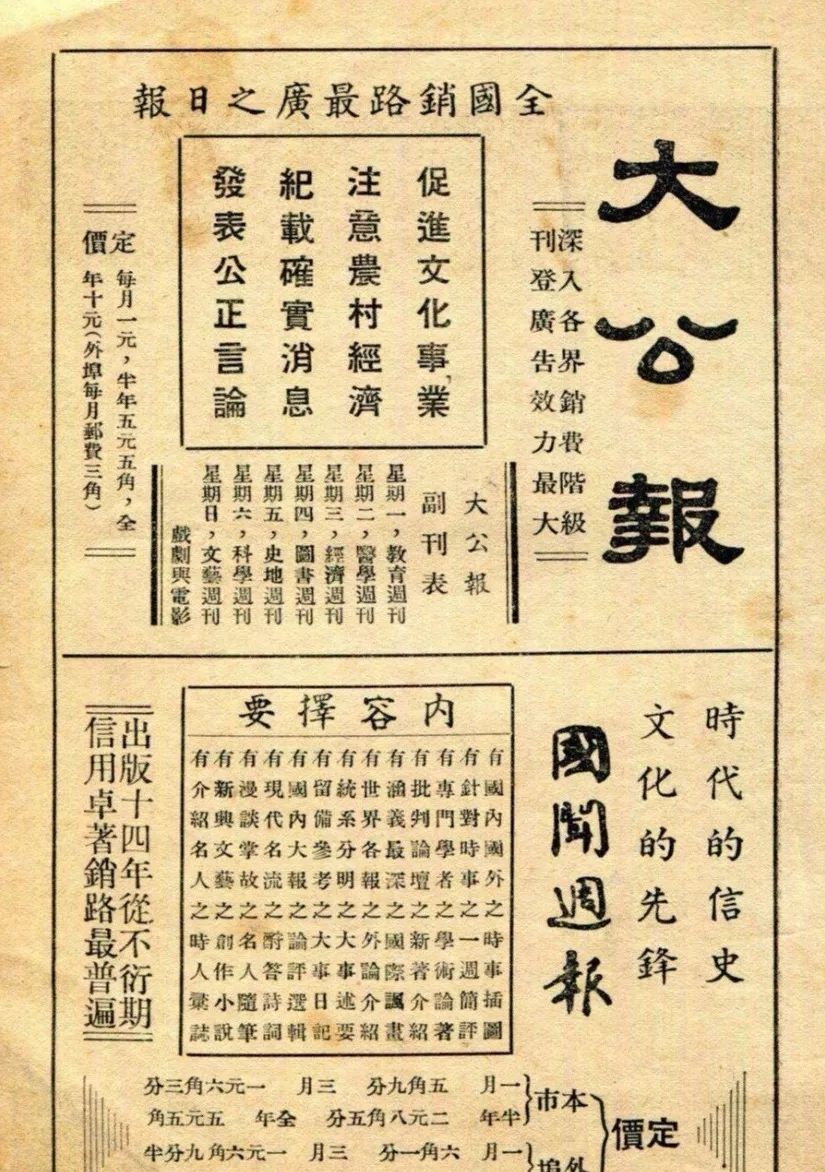 全國銷路最廣之日報
大公報
深入各界銷費階級
刊登廣告效力最大
促進文化事業
注意農村經濟
紀載確實消息
發表公正言論
大公報
副刊表
星期一，教育週刊
星期二，醫學週刊
星期三，經濟週刊
星期四，圖書週刊
星期五，史地週刊
星期六，科學週刊
星期日，文藝週刊
戲劇與電影
定價
每月一元，半年五元五角，全
年十元（外埠每月郵費三角）
時代的信史
文化的先鋒
國聞週報
內容擇要
有國內國外之時事插圖
有針對時事之一週簡評
有專門學者之學術論著
有批判論壇之新著介紹
有涵義最深之國際諷畫
有世界各報之外論介紹
有統系分明之大事述要
有留備參考之大事日記
有國內大報之論評選輯
有現代名流之酧答詩詞
有漫談掌故之名人隨筆
有新興文藝之創作小說
有介紹名人之時人彙誌
出版十四年從不衍期
信用卓著銷路最普遍
定價
本市
一月 五角九分 三月 一元六角三分
半年 二元八角五分 全年 五元五角
外埠
一月 六角一分 三月 一元六角九分半